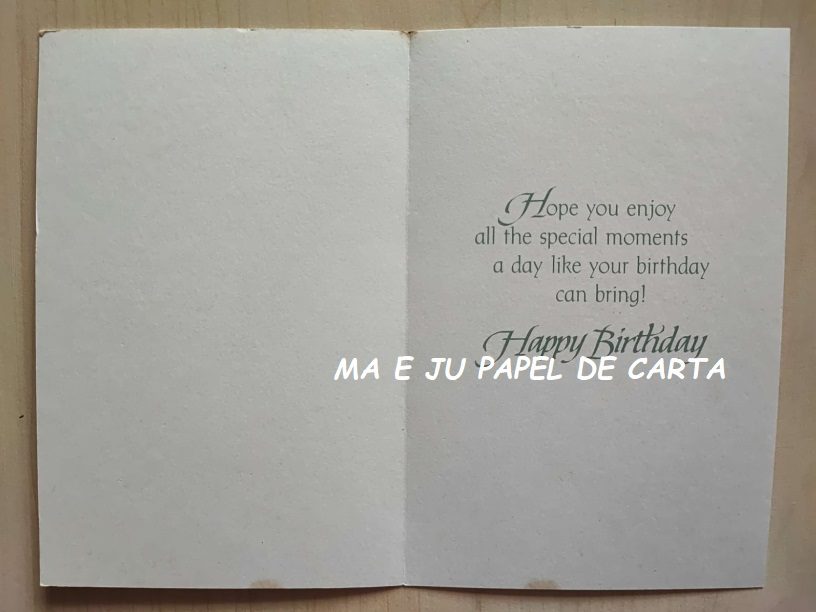 Hope you enjoy
all the special moments
a day like your birthday
can bring!
Happy Birthday
MA E JU PAPEL DE CARTA